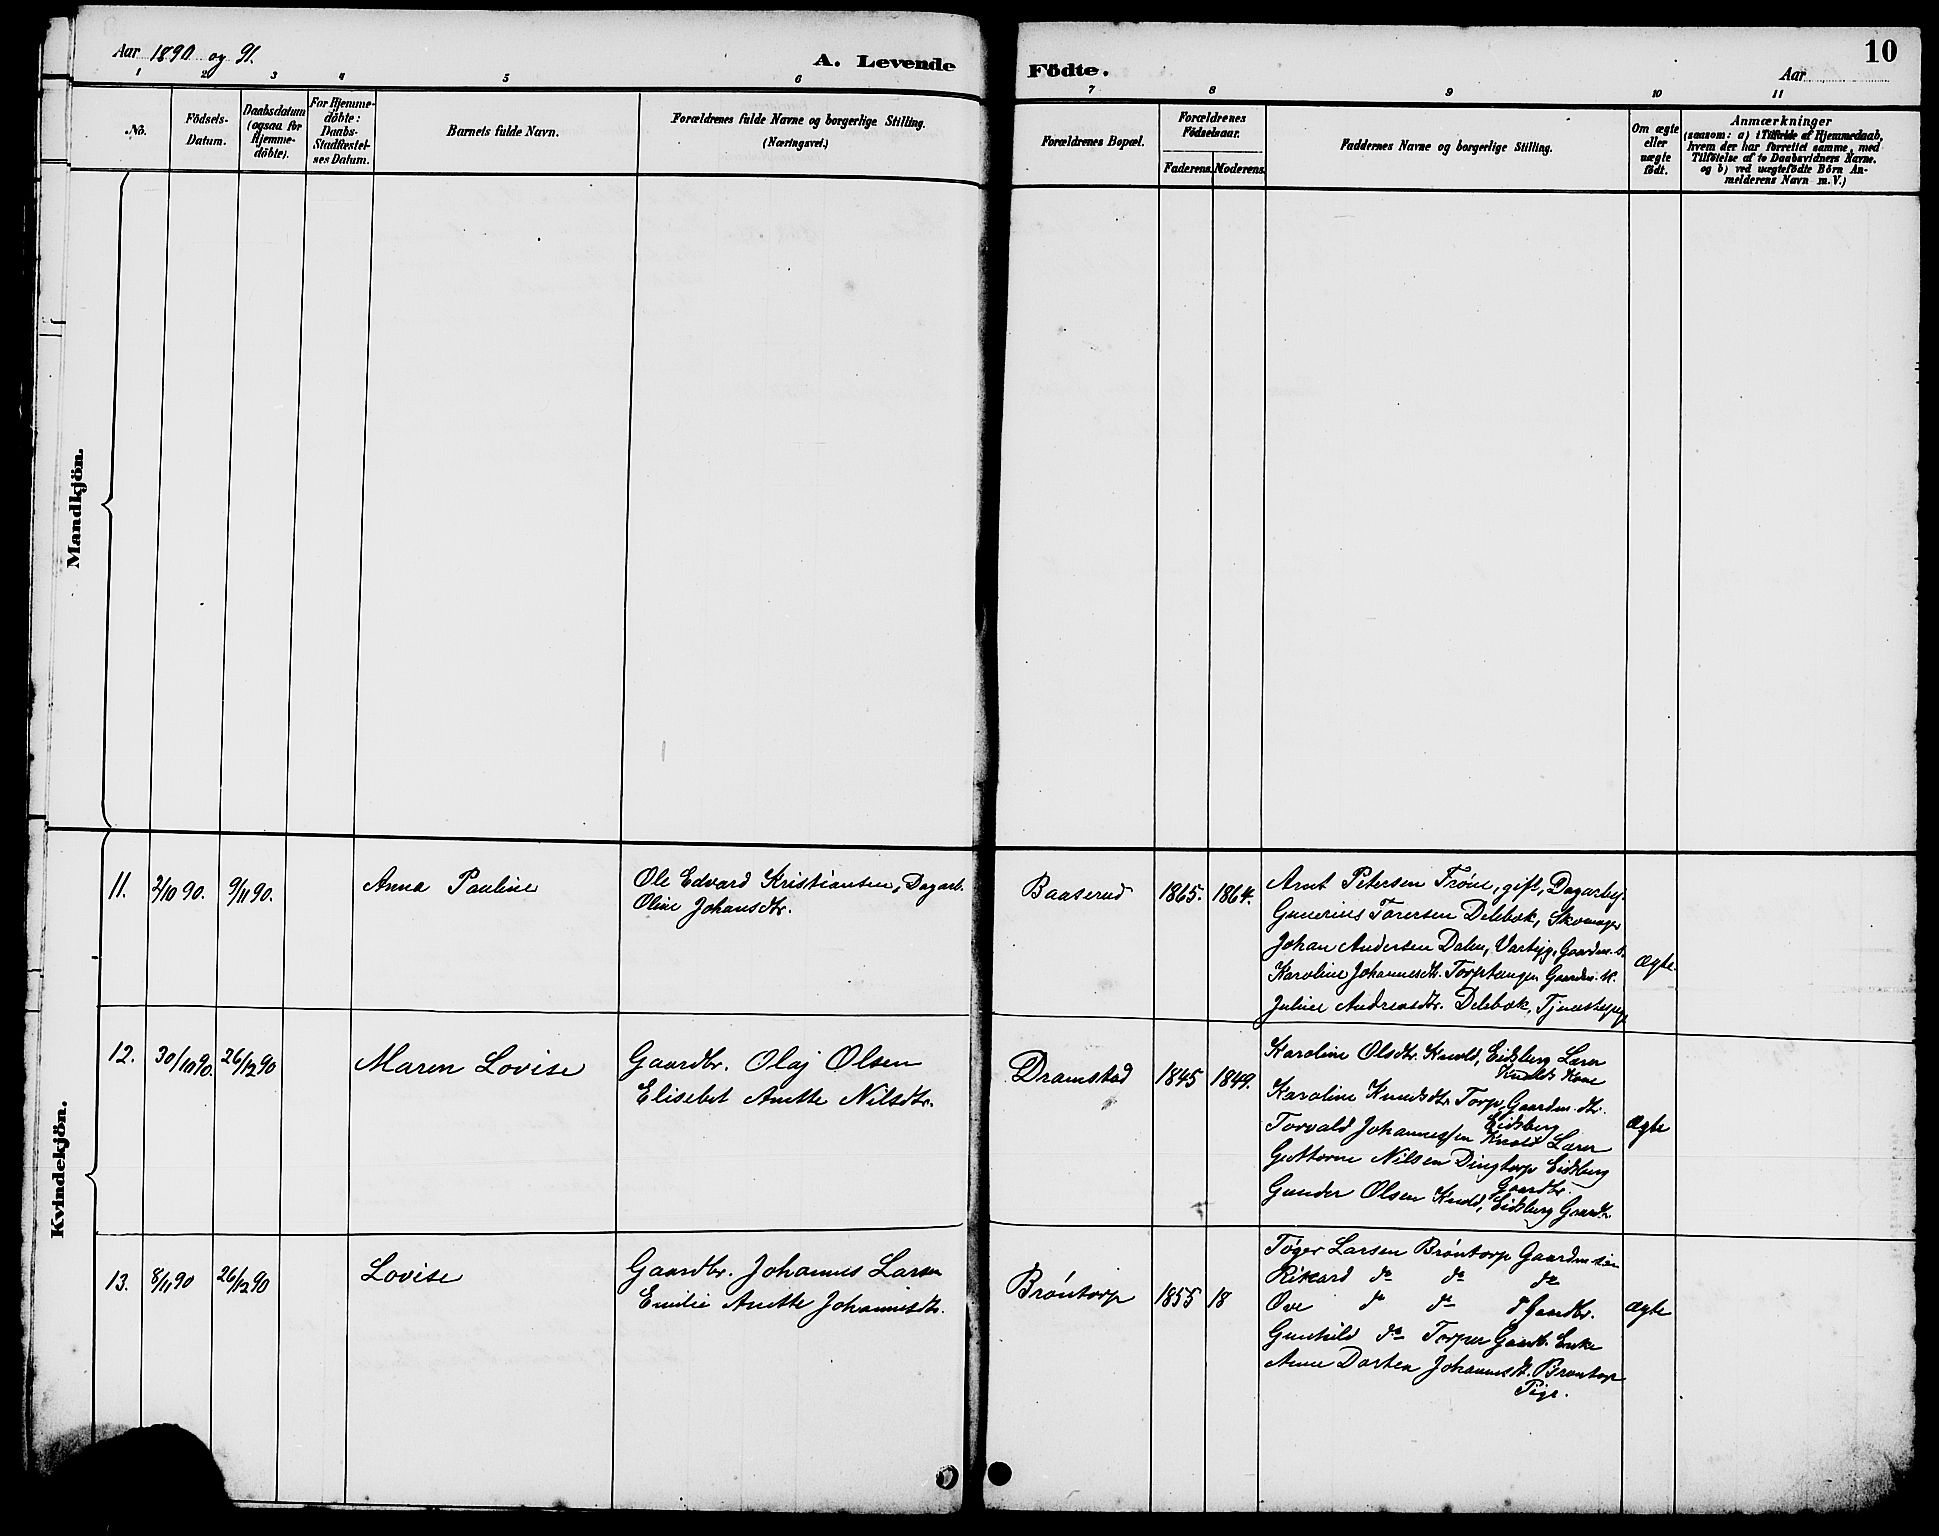 Aar 1890 og 91.
A. Levende
Födte.
10
Aar
1 2 3 4 5 6 7 8 9 10 11
No.
Födsels-
Datum.
Daabsdatum
(ogsaa for
Hjemme-
döbte).
For Hjemme-
döbte:
Daabs-
Stadfæstel-
ses Datum.
Barnets fulde Navn.
Forældrenes fulde Navne og borgerlige Stilling.
(Næringsvei.)
Forældrenes Bopæl.
Forældrenes
Födselsaar.
Faderens. Moderens.
Faddernes Navne og borgerlige Stilling.
Om ægte
eller
uægte
født.
Anmærkninger
(saasom: a) i Tilfælde af Hjemmedaab,
hvem der har forrettet samme, med
Tilföielse af to Daabsvidners Navne.
og b) ved uægtefödte Börn An-
melderens Navn m. V.)
Mandkjön.
Kvindekjön.
11. 2/10 90. 9/11 90.
Anna Pauline
Ole Edvard Kristiansen, Dagarb.
Oline Johansdtr.
Baaserud
1865. 1864.
Arnt Petersen Tröne, gift, Dagarbej.
Gunerius Torersen Delebæk, Skomager
Johan Andersen Dalen, Varteig, Gaardm. s.
Karoline Johannesdtr. Torptangen Gaardm. K.
Juline Andreasdtr. Delebæk, Tjenestepige
Ægte.
12. 30/10 90. 26/12 90
Maren Lovise
Gaardbr. Olaj Olsen
Elisebet Anette Nilsdtr.
Dramstad
1845 1849.
Karoline Olsdtr. Knold, Eidsberg Lærer
Knolds Kone
Karoline Knudsdtr. Torp, Gaardm. dtr.
Eidsberg
Torvald Johannessen Knold Lærer
Guttorm Nilsen Dingtorp Eidsberg
Gaardbr.
Gunder Olsen Knold, Eidsberg Gaardbr.
Ægte
13. 8/11 90 26/12 90
Lovise
Gaardbr. Johannes Larsen
Emilie Anette Johannesdtr.
Bröntorp
1855 18
Töger Larsen Bröntorp Gaardm. sön
Rikard do do do
Ove do do d Gaardbr.
Gunhild do Torper Gaardb. Enke
Anne Dortea Johannesdt. Brontorp
Pige.
Ægte